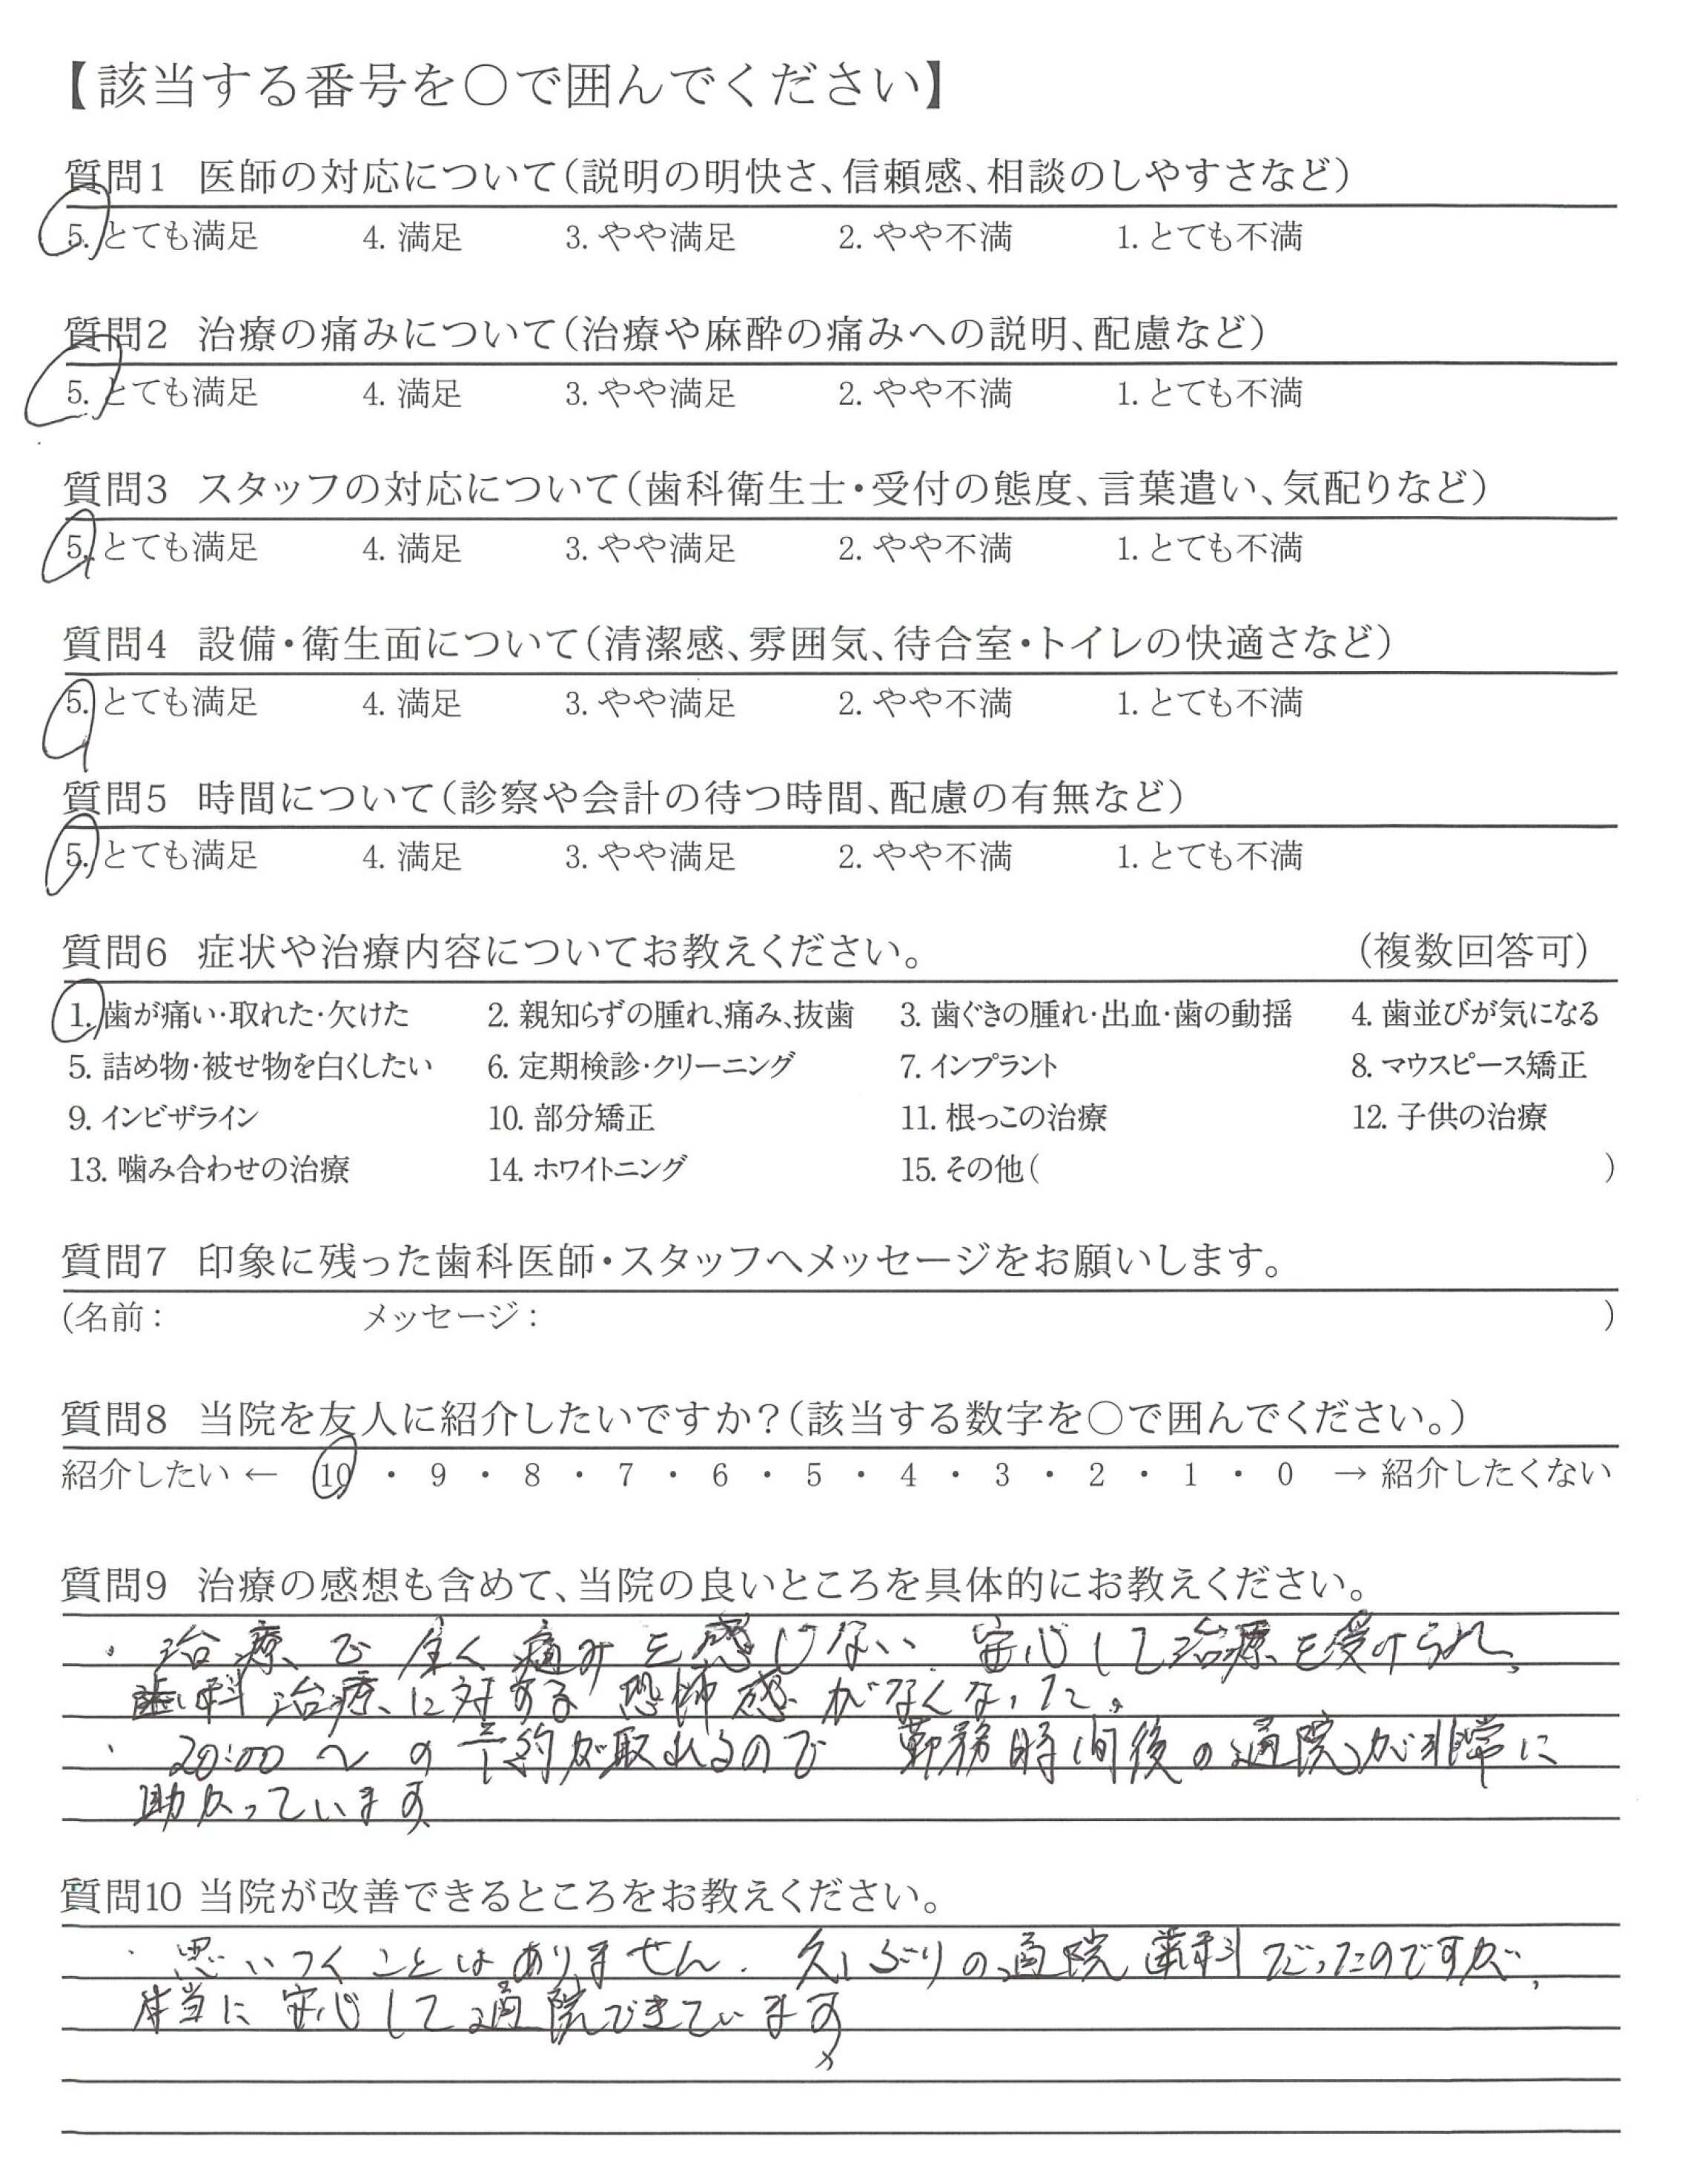 【該当する番号を〇で囲んでください】
質問1 医師の対応について(説明の明快さ、信頼感、相談のしやすさなど)
5. とても満足 4. 満足 3. やや満足 2. やや不満 1. とても不満
質問2 治療の痛みについて(治療や麻酔の痛みへの説明、配慮など)
5. とても満足 4. 満足 3. やや満足 2. やや不満 1. とても不満
質問3 スタッフの対応について(歯科衛生士・受付の態度、言葉遣い、気配りなど)
5. とても満足 4. 満足 3. やや満足 2. やや不満 1. とても不満
質問4 設備・衛生面について(清潔感、雰囲気、待合室・トイレの快適さなど)
5. とても満足 4. 満足 3. やや満足 2. やや不満 1. とても不満
質問5 時間について(診察や会計の待つ時間、配慮の有無など)
5. とても満足 4. 満足 3. やや満足 2. やや不満 1. とても不満
質問6 症状や治療内容についてお教えください。 (複数回答可)
1. 歯が痛い・取れた・欠けた 2. 親知らずの腫れ、痛み、抜歯 3. 歯ぐきの腫れ・出血・歯の動揺 4. 歯並びが気になる
5. 詰め物・被せ物を白くしたい 6. 定期検診・クリーニング 7. インプラント 8. マウスピース矯正
9. インビザライン 10. 部分矯正 11. 根っこの治療 12. 子供の治療
13. 噛み合わせの治療 14. ホワイトニング 15. その他( )
質問7 印象に残った歯科医師・スタッフへメッセージをお願いします。
(名前: メッセージ: )
質問8 当院を友人に紹介したいですか?(該当する数字を〇で囲んでください。)
紹介したい ← 10 ・ 9 ・ 8 ・ 7 ・ 6 ・ 5 ・ 4 ・ 3 ・ 2 ・ 1 ・ 0 → 紹介したくない
質問9 治療の感想も含めて、当院の良いところを具体的にお教えください。
・治療で全く痛みを感じない、安心して治療を受けられ、
歯科治療に対する恐怖感がなくなった。
・20:00〜の予約が取れるので 勤務時間後の通院が非常に
助かっています
質問10 当院が改善できるところをお教えください。
・思いつくことはありません. 久しぶりの通院歯科だったのですが、
本当に安心して通院できています